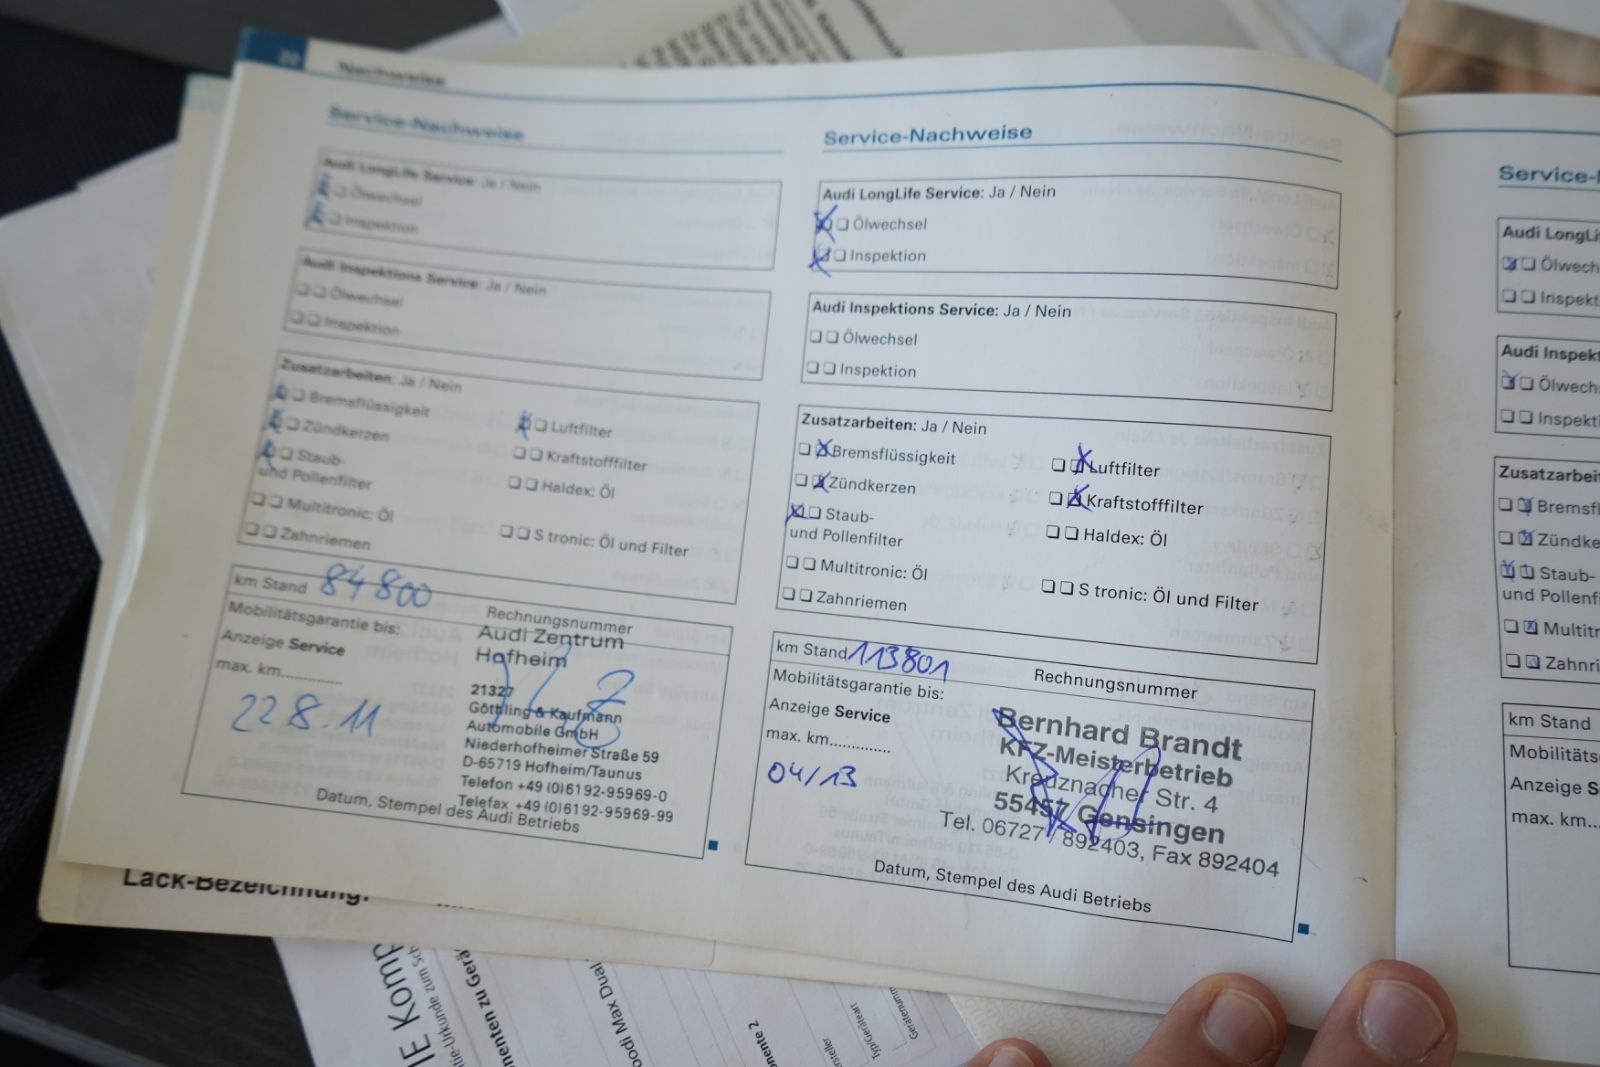 20 Nachweise
Service-Nachweise
Audi LongLife Service: Ja / Nein
Ölwechsel
Inspektion
Audi Inspektions Service: Ja / Nein
Ölwechsel
Inspektion
Zusatzarbeiten: Ja / Nein
Bremsflüssigkeit
Luftfilter
Zündkerzen
Kraftstofffilter
Staub-
und Pollenfilter
Haldex: Öl
Multitronic: Öl
Zahnriemen
S tronic: Öl und Filter
km Stand 84800
Rechnungsnummer
Mobilitätsgarantie bis:
Anzeige Service
max. km..............
22.8.11
Audi Zentrum
Hofheim
21327
Göthling & Kaufmann
Automobile GmbH
Niederhofheimer Straße 59
D-65719 Hofheim/Taunus
Telefon +49 (0)6192-95969-0
Telefax +49 (0)6192-95969-99
Datum, Stempel des Audi Betriebs
Service-Nachweise
Audi LongLife Service: Ja / Nein
Ölwechsel
Inspektion
Audi Inspektions Service: Ja / Nein
Ölwechsel
Inspektion
Zusatzarbeiten: Ja / Nein
Bremsflüssigkeit
Luftfilter
Zündkerzen
Kraftstofffilter
Staub-
und Pollenfilter
Haldex: Öl
Multitronic: Öl
Zahnriemen
S tronic: Öl und Filter
km Stand 113801
Rechnungsnummer
Mobilitätsgarantie bis:
Anzeige Service
max. km..............
04/13
Bernhard Brandt
KFZ-Meisterbetrieb
Kreuznacher Str. 4
55457 Gensingen
Tel. 06727 / 892403, Fax 892404
Datum, Stempel des Audi Betriebs
Service-
Audi LongLi
Ölwech
Inspekt
Audi Inspek
Ölwechs
Inspekti
Zusatzarbei
Bremsfl
Zündke
Staub-
und Pollenfi
Multitr
Zahnri
km Stand
Mobilitäts
Anzeige S
max. km...
Lack-Bezeichnung:
Gerätenumm
Typ/Geräteart